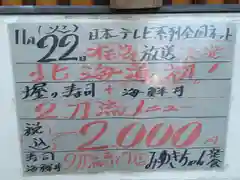 11月22日
日本テレビ系列全国ネット
放送
北海道初!
寿司 + 海鮮丼
2刀流メニュー
税込 2000円
寿司
2刀流
みゆきちゃん定食